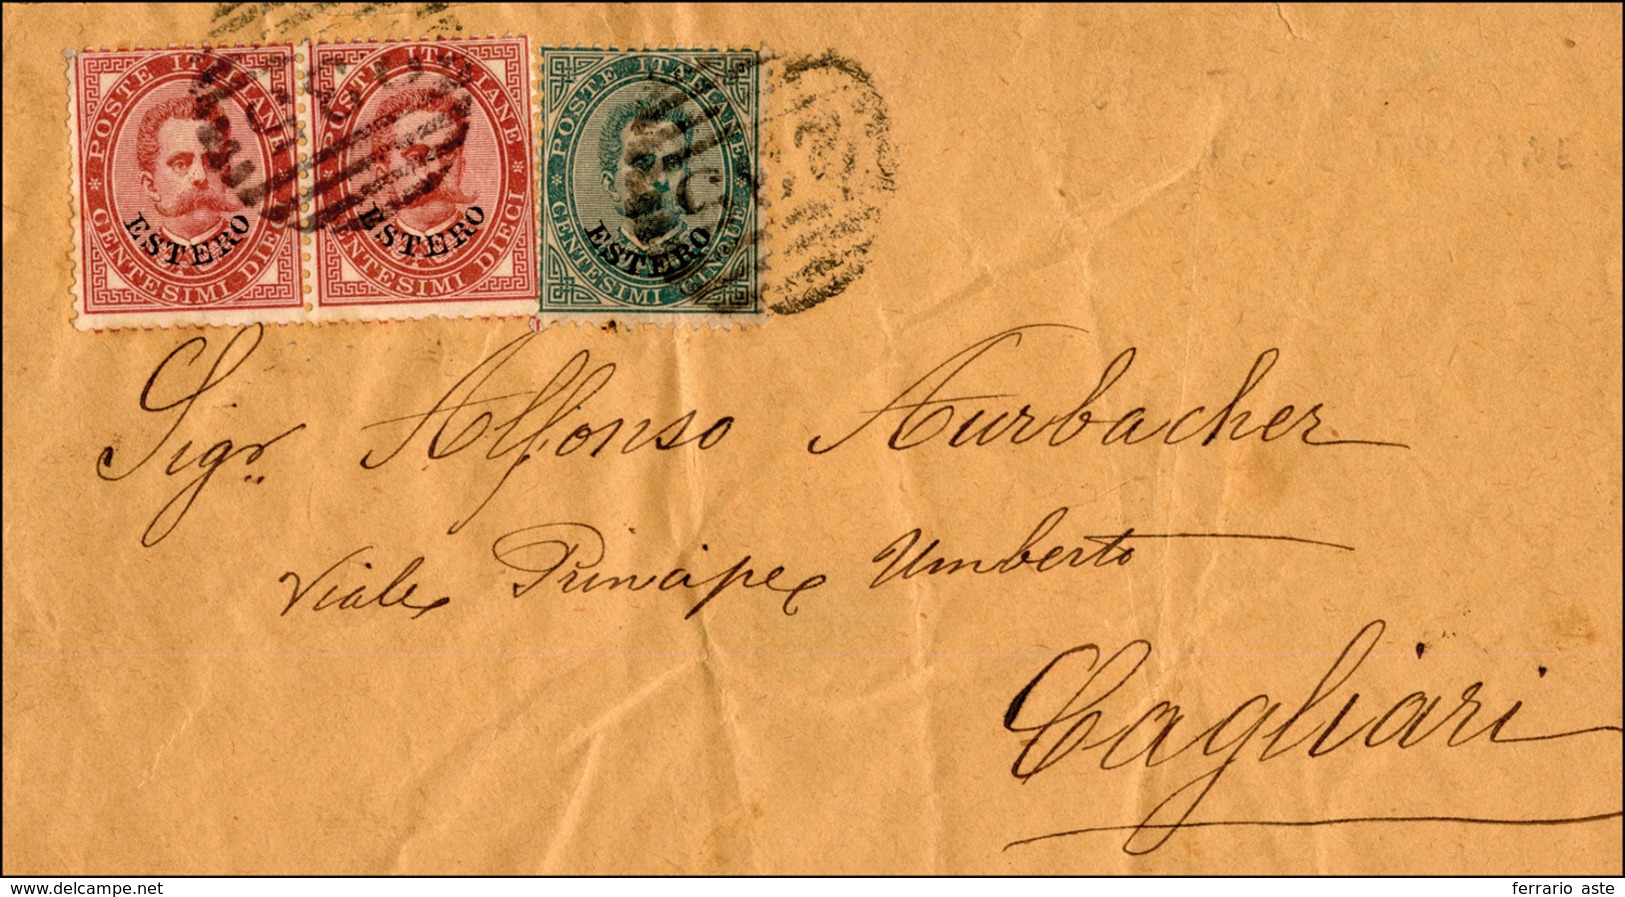 POSTE ITALIANE
CENTESIMI DIECI
ESTERO
POSTE ITALIANE
CENTESIMI DIECI
ESTERO
POSTE ITALIANE
CENTESIMI CINQUE
ESTERO
Sigr. Alfonso Aurbacher
Viale Principe Umberto
Cagliari
delcampe.net
ferrario aste